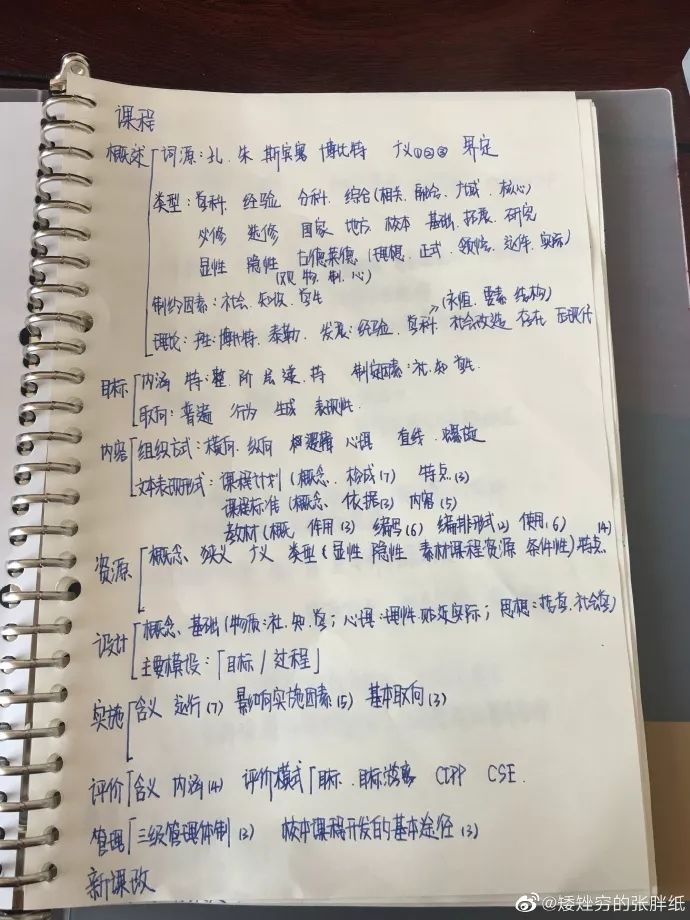 课程
概述 词源：孔、朱 斯宾塞 博比特 广义①②③ 界定
类型：学科、经验 分科、综合(相关、融合、广域、核心)
必修 选修 国家、地方、校本 基础、拓展、研究
显性 隐性 古德莱德(理想、正式、领悟、运作、实际)
(观、物、制、心)
制约因素：社会、知识、学生
(永恒、要素、结构)
理论：博比特、泰勒、发展：经验、学科、社会改造 存在 后现代
目标 内涵 特：整、阶、层、递、持 制定因素：社、知、学生
取向：普遍 行为 生成 表现性
内容 组织方式：横向、纵向 逻辑 心理 直线、螺旋
文本表现形式：课程计划(概念、构成(7) 特点(3)
课程标准(概念、依据(3) 内容(5)
教材(概、作用(3) 编写(6) 编排形式(2) 使用(6)
资源 概念、狭义 广义 类型(显性 隐性 素材课程资源 条件性)特点(4)
设计 概念、基础(物质：社、知、学；心理：理性 实际；思想：哲学、社会学)
主要模段：「目标/过程」
实施 含义 运行(7) 影响实施因素(5) 基本取向(3)
评价 含义 内涵(4) 评价模式「目标、目标游离 CIPP CSE.
管理 三级管理体制(3) 校本课程开发的基本途径(3)
新课改
@矮矬穷的张胖纸